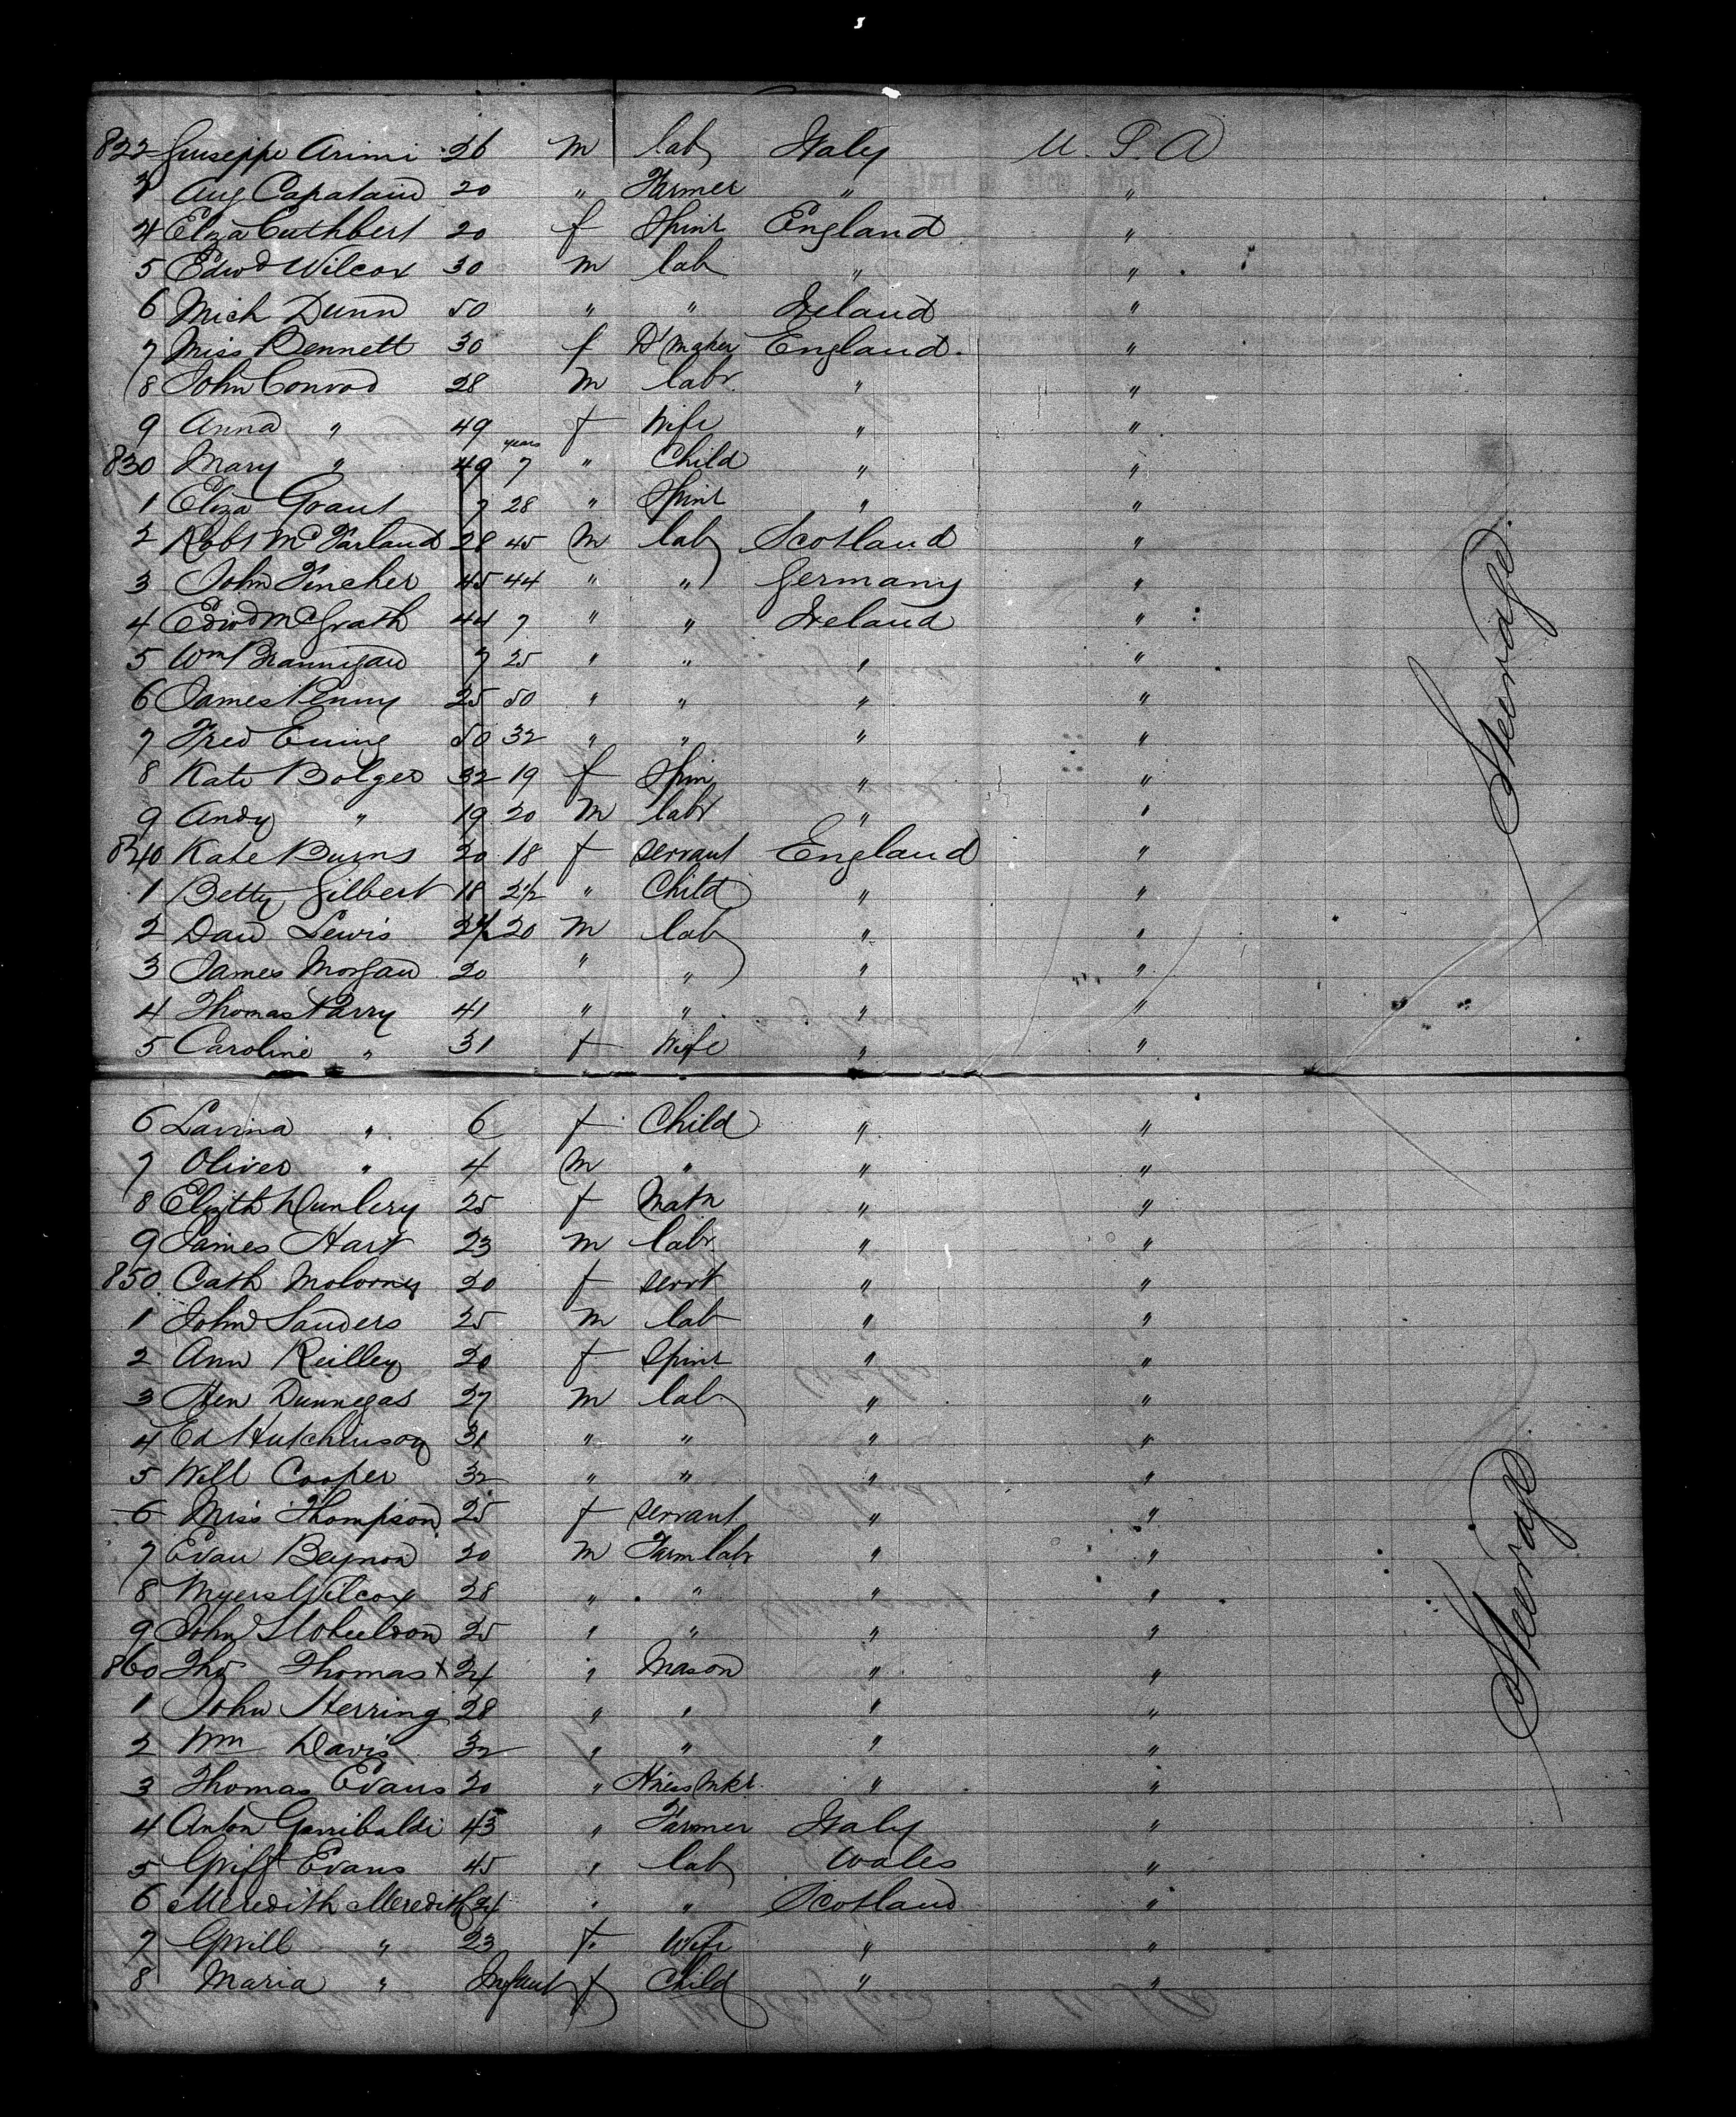 822 Giuseppe Arimi 26 m lab Italy U.S.A
3 Aug Capatain 20 " Farmer " "
4 Eliza Cuthbert 20 f Spinr England "
5 Edwd Wilcox 30 m lab " "
6 Mich Dunn 50 " " Ireland "
7 Miss Bennett 30 f D'maker England. "
8 John Conrad 28 m labr " "
9 Anna " 49 f Wife " "
years
830 Mary " 49 7 " Child " "
1 Eliza Grant 7 28 " Spinr " "
2 Robt McFarland 28 45 m lab Scotland "
3 John Fincher 45 44 " " Germany "
4 Edwd McGrath 44 7 " " Ireland "
5 Wm Brannigan 7 25 " " " "
6 James Penny 25 50 " " " "
7 Fred Ewing 50 32 " " " "
8 Kate Bolger 32 19 f Spin " "
9 Andy " 19 20 m labr " "
840 Kate Burns 20 18 f servant England "
1 Betty Gilbert 18 2½ " Child " "
2 Dav Lewis 2½ 20 m lab " "
3 James Morgan 20 " " " "
4 Thomas Parry 41 " " " "
5 Caroline " 31 f Wife " "
6 Lavina " 6 f Child " "
7 Oliver " 4 m " " "
8 Elizth Dunlery 25 f Matn " "
9 James Hart 23 m labr " "
850 Cath Moloney 20 f servt " "
1 John Sanders 25 m lab " "
2 Ann Reilley 20 f Spinr " "
3 Hen Dunnegas 27 m lab " "
4 Ed Hutchinson 31 " " " "
5 Will Cooper 32 " " " "
6 Miss Thompson 25 f servant " "
7 Evan Beynon 20 m Farm labr " "
8 Myers Wilcox 28 " " " "
9 John 25 " " " "
860 Tho Thomas x 24 " Mason " "
1 John Herring 28 " " " "
2 Wm Davis 32 " " " "
3 Thomas Evans 20 " Hness Mkr. " "
4 Anton Garribaldi 43 " Farmer Italy "
5 Griff Evans 45 " lab Wales "
6 Meredith Meredith 24 " " Scotland "
7 Grill " 23 f. Wife " "
8 Maria " Infant f Child " "
Steerage
Steerage